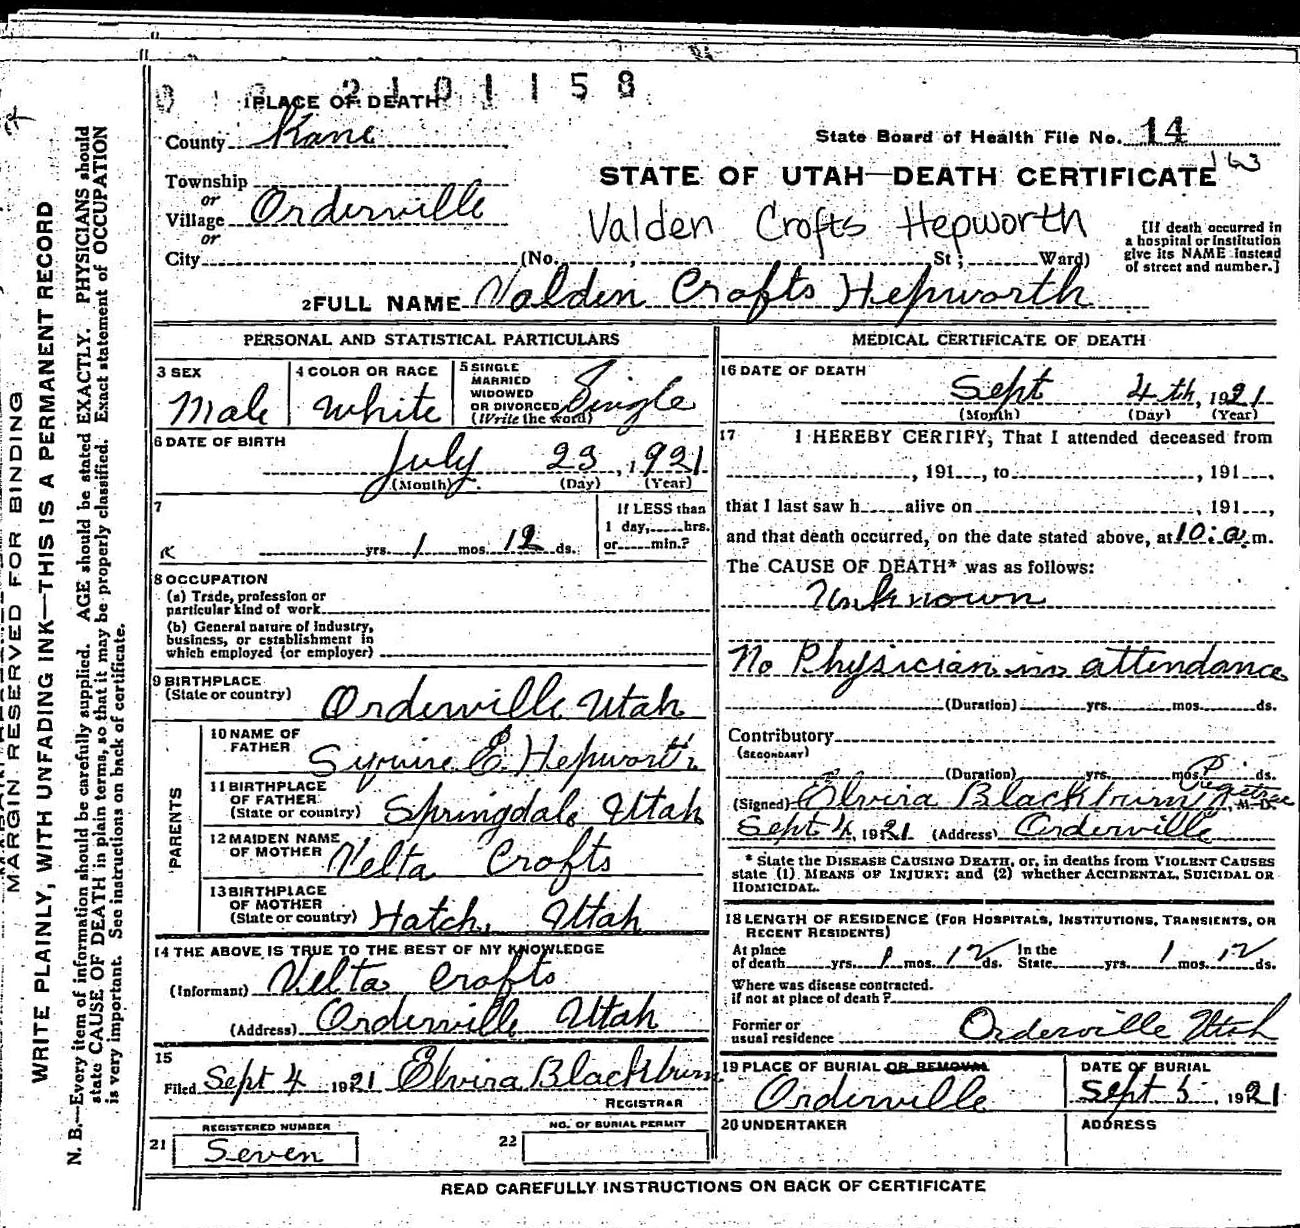 2101158
1 PLACE OF DEATH
County Kane
State Board of Health File No. 14
163
Township
or
Village Orderville
or
City (No. , St; Ward)
STATE OF UTAH—DEATH CERTIFICATE
Valden Crofts Hepworth
[If death occurred in
a hospital or institution
give its NAME instead
of street and number.]
2 FULL NAME Valden Crofts Hepworth
PERSONAL AND STATISTICAL PARTICULARS
3 SEX
Male
4 COLOR OR RACE
White
5 SINGLE
MARRIED
WIDOWED
OR DIVORCED
(Write the word)
Single
6 DATE OF BIRTH
July 23, 1921
(Month) (Day) (Year)
7
yrs. 1 mos. 12 ds.
If LESS than
1 day, hrs.
or min.?
8 OCCUPATION
(a) Trade, profession or
particular kind of work
(b) General nature of industry,
business, or establishment in
which employed (or employer)
9 BIRTHPLACE
(State or country)
Orderville Utah
PARENTS
10 NAME OF
FATHER
Squire E. Hepworth
11 BIRTHPLACE
OF FATHER
(State or country)
Springdale Utah
12 MAIDEN NAME
OF MOTHER
Velta Crofts
13 BIRTHPLACE
OF MOTHER
(State or country)
Hatch, Utah
14 THE ABOVE IS TRUE TO THE BEST OF MY KNOWLEDGE
(Informant) Velta Crofts
(Address) Orderville Utah
15
Filed Sept 4 1921 Elvira Blackburn
REGISTRAR
REGISTERED NUMBER
21 Seven
NO. OF BURIAL PERMIT
22
MEDICAL CERTIFICATE OF DEATH
16 DATE OF DEATH
Sept 4th, 1921
(Month) (Day) (Year)
17 I HEREBY CERTIFY, That I attended deceased from
, 191 , to , 191 ,
that I last saw h alive on , 191 ,
and that death occurred, on the date stated above, at 10: a. m.
The CAUSE OF DEATH* was as follows:
Unknown
No Physician in attendance
(Duration) yrs. mos. ds.
Contributory
(SECONDARY)
(Duration) yrs. mos. ds.
(Signed) Elvira Blackburn M.D.
Sept 4, 1921 (Address) Orderville
* State the DISEASE CAUSING DEATH, or, in deaths from VIOLENT CAUSES
state (1) MEANS OF INJURY; and (2) whether ACCIDENTAL, SUICIDAL OR
HOMICIDAL.
18 LENGTH OF RESIDENCE (FOR HOSPITALS, INSTITUTIONS, TRANSIENTS, OR
RECENT RESIDENTS)
At place
of death yrs. 1 mos. 12 ds.
In the
State yrs. 1 mos. 12 ds.
Where was disease contracted.
if not at place of death ?
Former or
usual residence Orderville Utah
19 PLACE OF BURIAL OR REMOVAL
Orderville
DATE OF BURIAL
Sept 5, 1921
20 UNDERTAKER
ADDRESS
READ CAREFULLY INSTRUCTIONS ON BACK OF CERTIFICATE
MARGIN RESERVED FOR BINDING
WRITE PLAINLY, WITH UNFADING INK—THIS IS A PERMANENT RECORD
N. B.—Every item of information should be carefully supplied. AGE should be stated EXACTLY. PHYSICIANS should
state CAUSE OF DEATH in plain terms, so that it may be properly classified. Exact statement of OCCUPATION
is very important. See instructions on back of certificate.